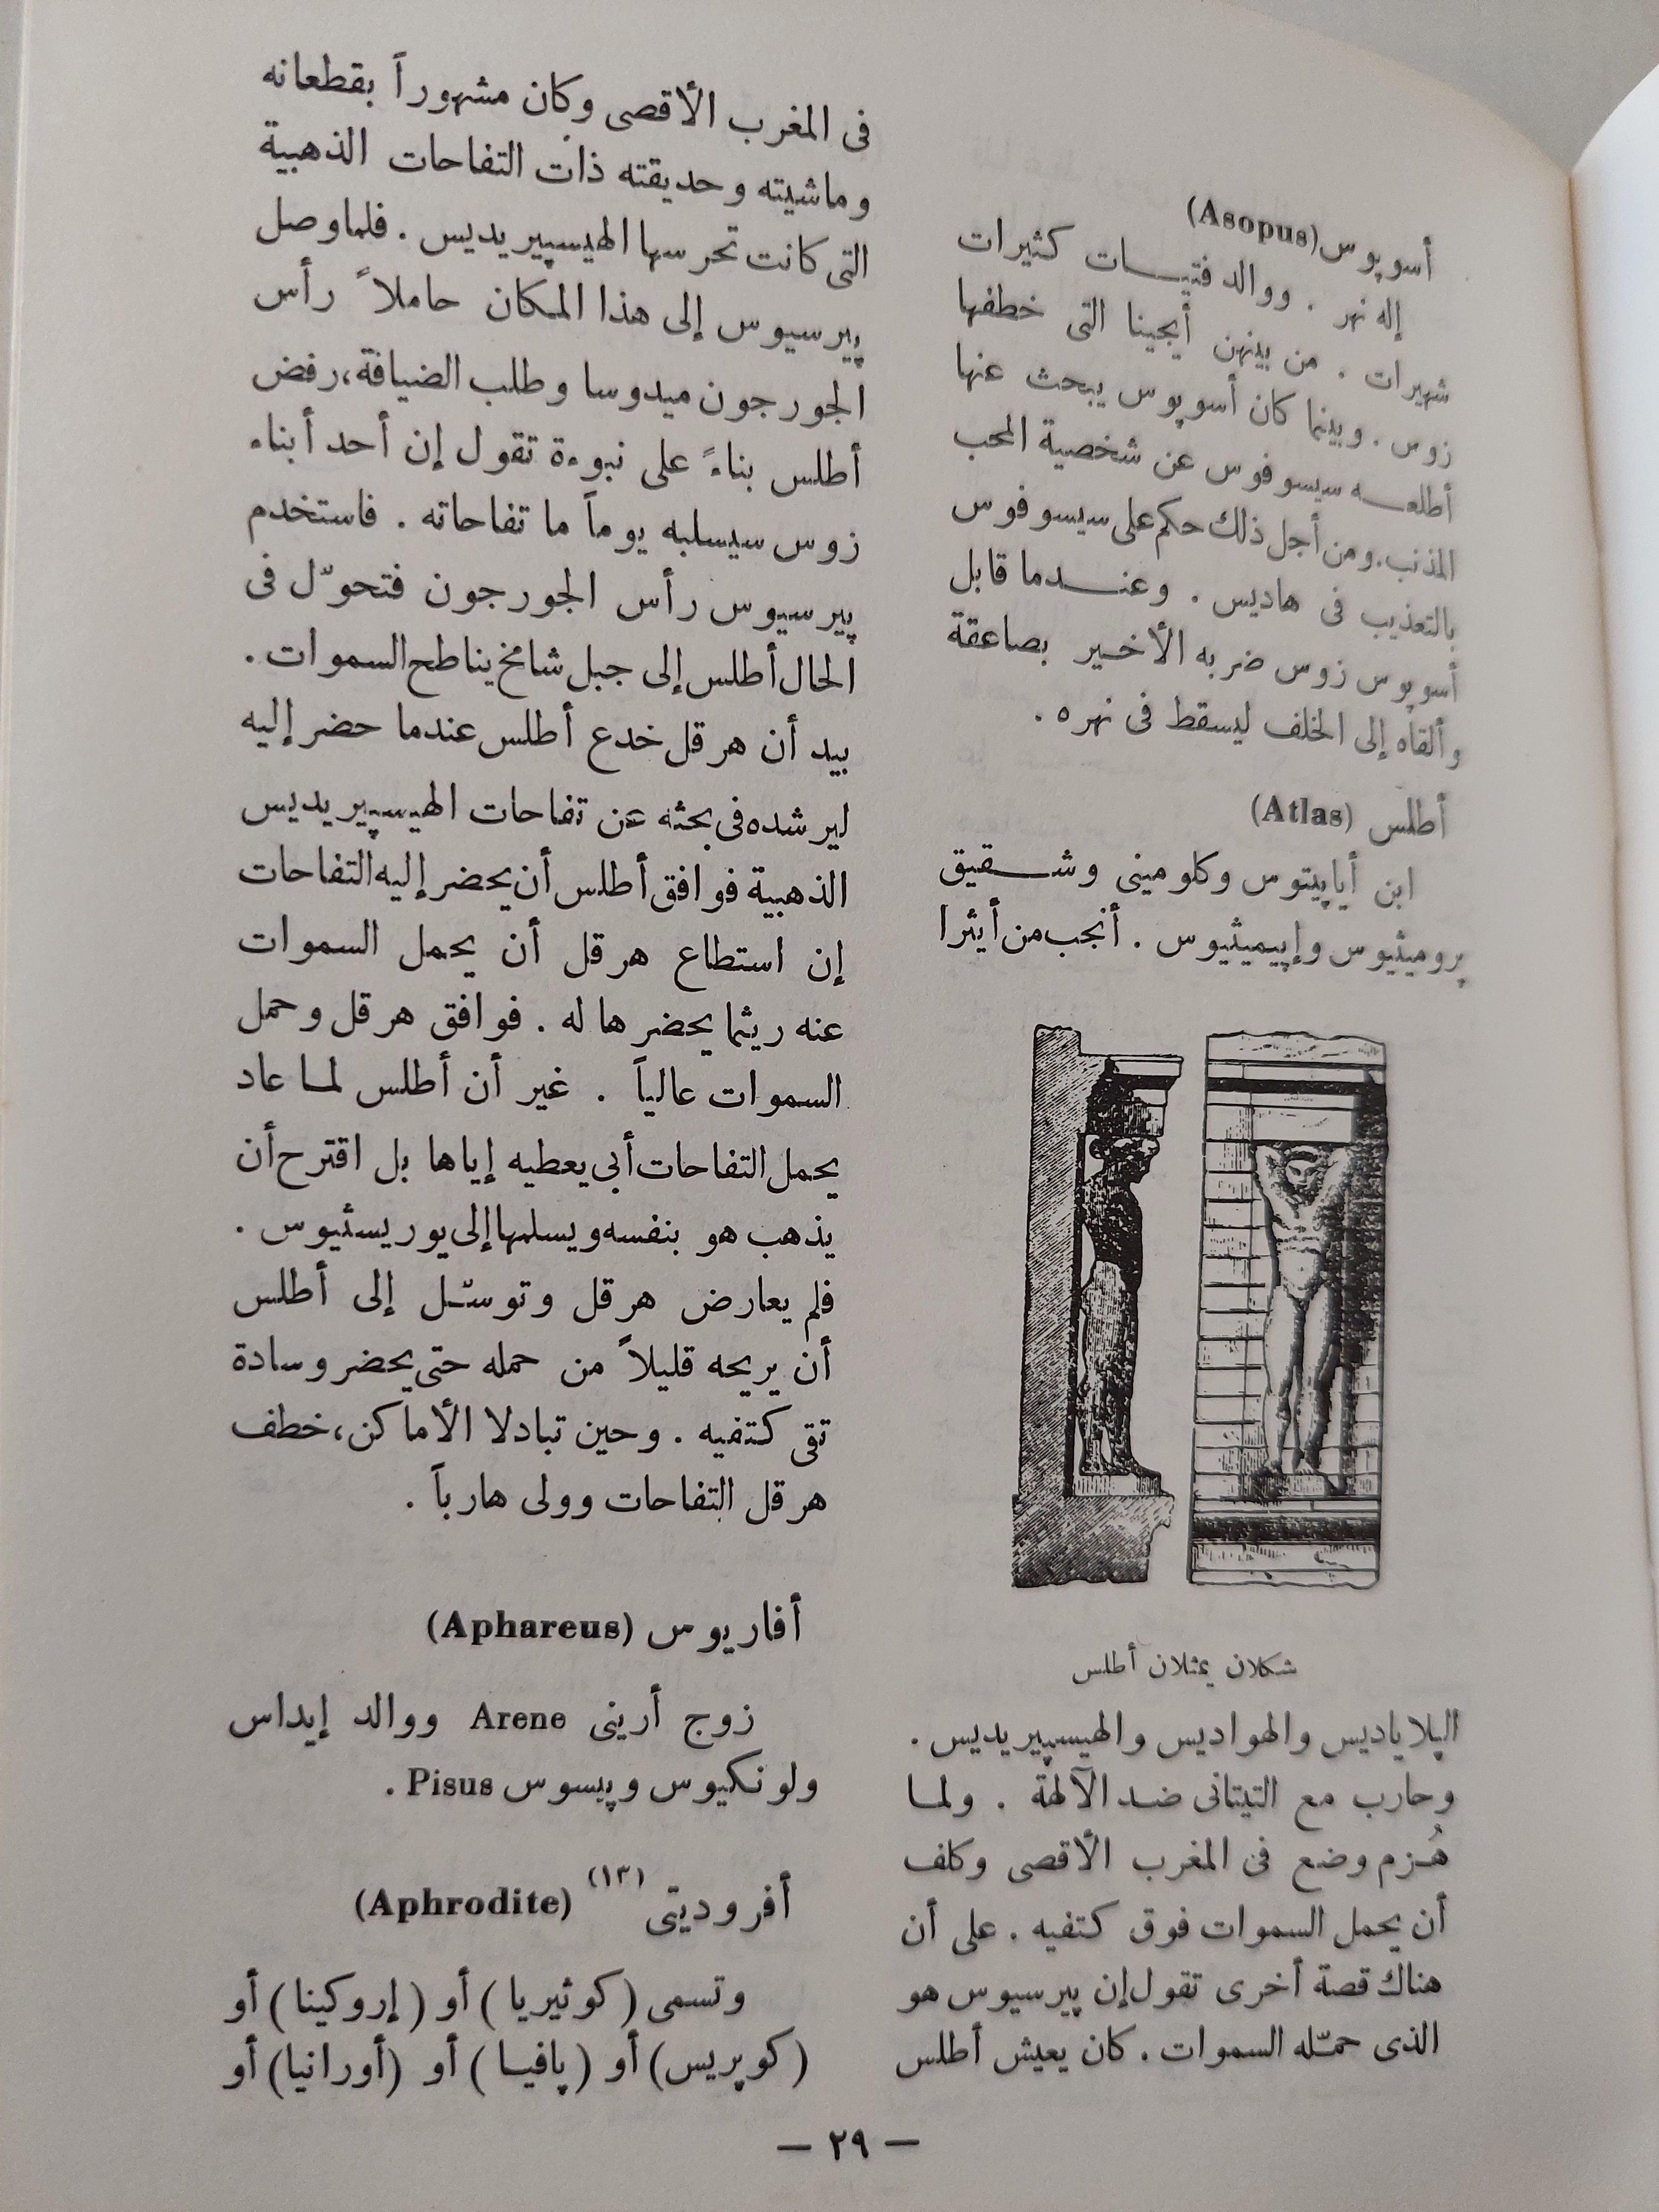 أسوپوس (Asopus)
إله نهر . ووالد فتيـــات كثيرات
شهيرات . من بينهن أيجينا التى خطفها
زوس . وبينما كان أسوپوس يبحث عنها
أطلعــه سيسوفوس عن شخصية المحب
المذنب. ومن أجل ذلك حكم على سيسوفوس
بالتعذيب فى هاديس . وعنــدما قابل
أسوپوس زوس ضربه الأخـير بصاعقة
وألقاه إلى الخلف ليسقط فى نهره .
أطلس (Atlas)
ابن أياپيتوس وكلومينى وشــقيق
پروميثيوس وإپيميثيوس . أنجب من أيثرا
شكلان يمثلان أطلس
الپلاياديس والهواديس والهيسپيريديس .
وحارب مع التيتانى ضـد الآلهة . ولمـا
هُـزم وضع فى المغرب الأقصى وكلف
أن يحمل السموات فوق كتفيه . على أن
هناك قصة أخرى تقول إن پيرسيوس هو
الذى حمّـله السموات . كان يعيش أطلس
فى المغرب الأقصى وكان مشهوراً بقطعانه
وماشيته وحديقته ذات التفاحات الذهبية
التى كانت تحرسها الهيسپيريديس . فلما وصل
پيرسيوس إلى هذا المكان حاملاً رأس
الجورجون ميدوسا وطلب الضيافة، رفض
أطلس بناءً على نبوءة تقول إن أحد أبناء
زوس سيسلبه يوماً ما تفاحاته . فاستخدم
پيرسيوس رأس الجورجون فتحوّل فى
الحال أطلس إلى جبل شامخ يناطح السموات .
بيد أن هرقل خدع أطلس عندما حضر إليه
ليرشده فى بحثه عن تفاحات الهيسپيريديس
الذهبية فوافق أطلس أن يحضر إليه التفاحات
إن استطاع هرقل أن يحمل السموات
عنه ريثما يحضرها له . فوافق هرقل وحمل
السموات عالياً . غير أن أطلس لمـا عاد
يحمل التفاحات أبى يعطيه إياها بل اقترح أن
يذهب هو بنفسه ويسلمها إلى يوريسثيوس .
فلم يعارض هرقل وتوسّـل إلى أطلس
أن يريحه قليلاً من حمله حتى يحضر وسادة
تقى كتفيه . وحين تبادلا الأماكن، خطف
هرقل التفاحات وولى هارباً .
أفاريوس (Aphareus)
زوج أرينى Arene ووالد إيداس
ولونكيوس وپيسوس Pisus .
أفروديتى (١٣) (Aphrodite)
وتسمى (كوثيريا) أو (إروكينا) أو
(كوپريس) أو (پافيـا) أو (أورانيا) أو
— ٢٩ —